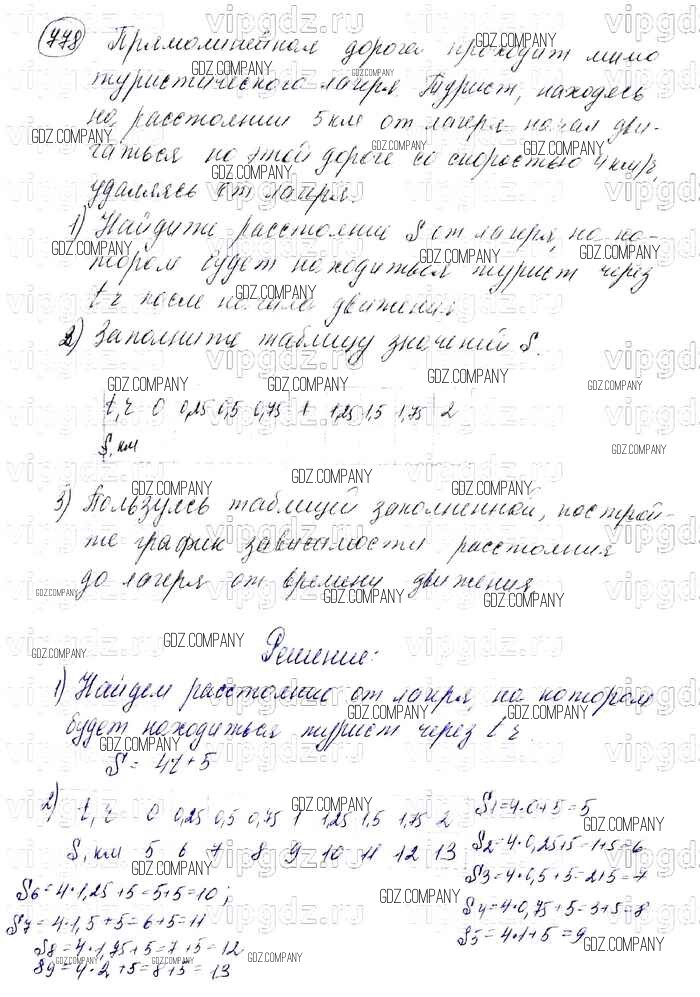 778 Прямолинейная дорога проходит мимо
туристического лагеря. Турист, находясь
на расстоянии 5 км от лагеря начал дви-
гаться по этой дороге со скоростью 4 км/ч,
удаляясь от лагеря.
1) Найдите расстояние S от лагеря, на ко-
тором будет находиться турист через
t ч после начала движения
2) Заполните таблицу значений S.
t, ч 0 0,25 0,5 0,75 1 1,25 1,5 1,75 2
S, км
3) Пользуясь таблицей заполненной, построй-
те график зависимости расстояния
до лагеря от времени движения
Решение:
1) Найдем расстояние от лагеря, на котором
будет находиться турист через t ч
S = 4t+5
2) t, ч 0 0,25 0,5 0,75 1 1,25 1,5 1,75 2
S, км 5 6 7 8 9 10 11 12 13
S1=4·0+5=5
S2=4·0,25+5=1+5=6
S3=4·0,5+5=2+5=7
S4=4·0,75+5=3+5=8
S5=4·1+5=9
S6=4·1,25+5=5+5=10;
S7=4·1,5+5=6+5=11
S8=4·1,75+5=7+5=12
S9=4·2+5=8+5=13
GDZ.COMPANY
vipgdz.ru